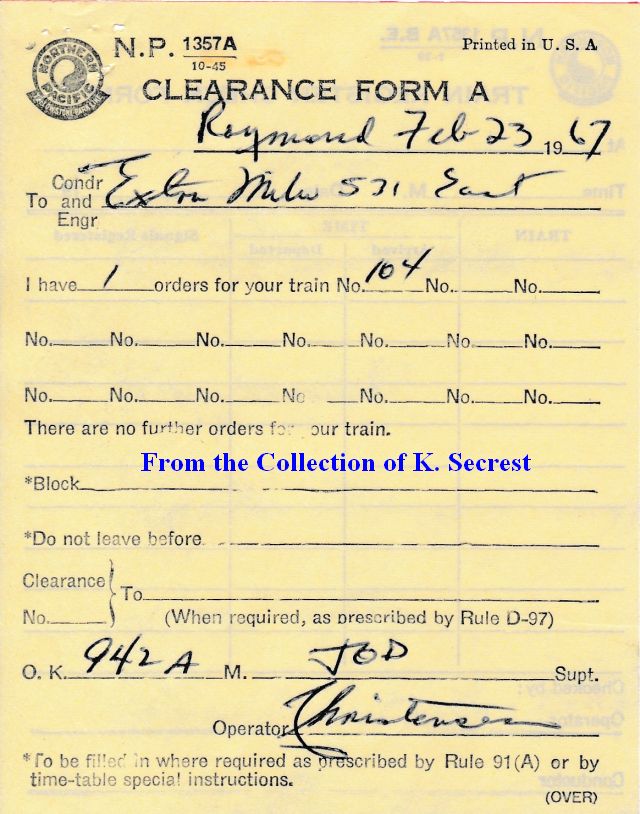 N.P. 1357A
10-45
Printed in U. S. A
NORTHERN PACIFIC
CLEARANCE FORM A
Raymond Feb 23 1967
Condr
To and Extra Milw 531 East
Engr
I have 1 orders for your train No. 104 No. No.
No. No. No. No. No. No. No.
No. No. No. No No. No. No.
There are no further orders for our train.
From the Collection of K. Secrest
*Block
*Do not leave before
Clearance
To
No. (When required, as prescribed by Rule D-97)
O. K. 942 A M. JOD Supt.
Operator Christensen
*To be filled in where required as prescribed by Rule 91(A) or by
time-table special instructions.
(OVER)